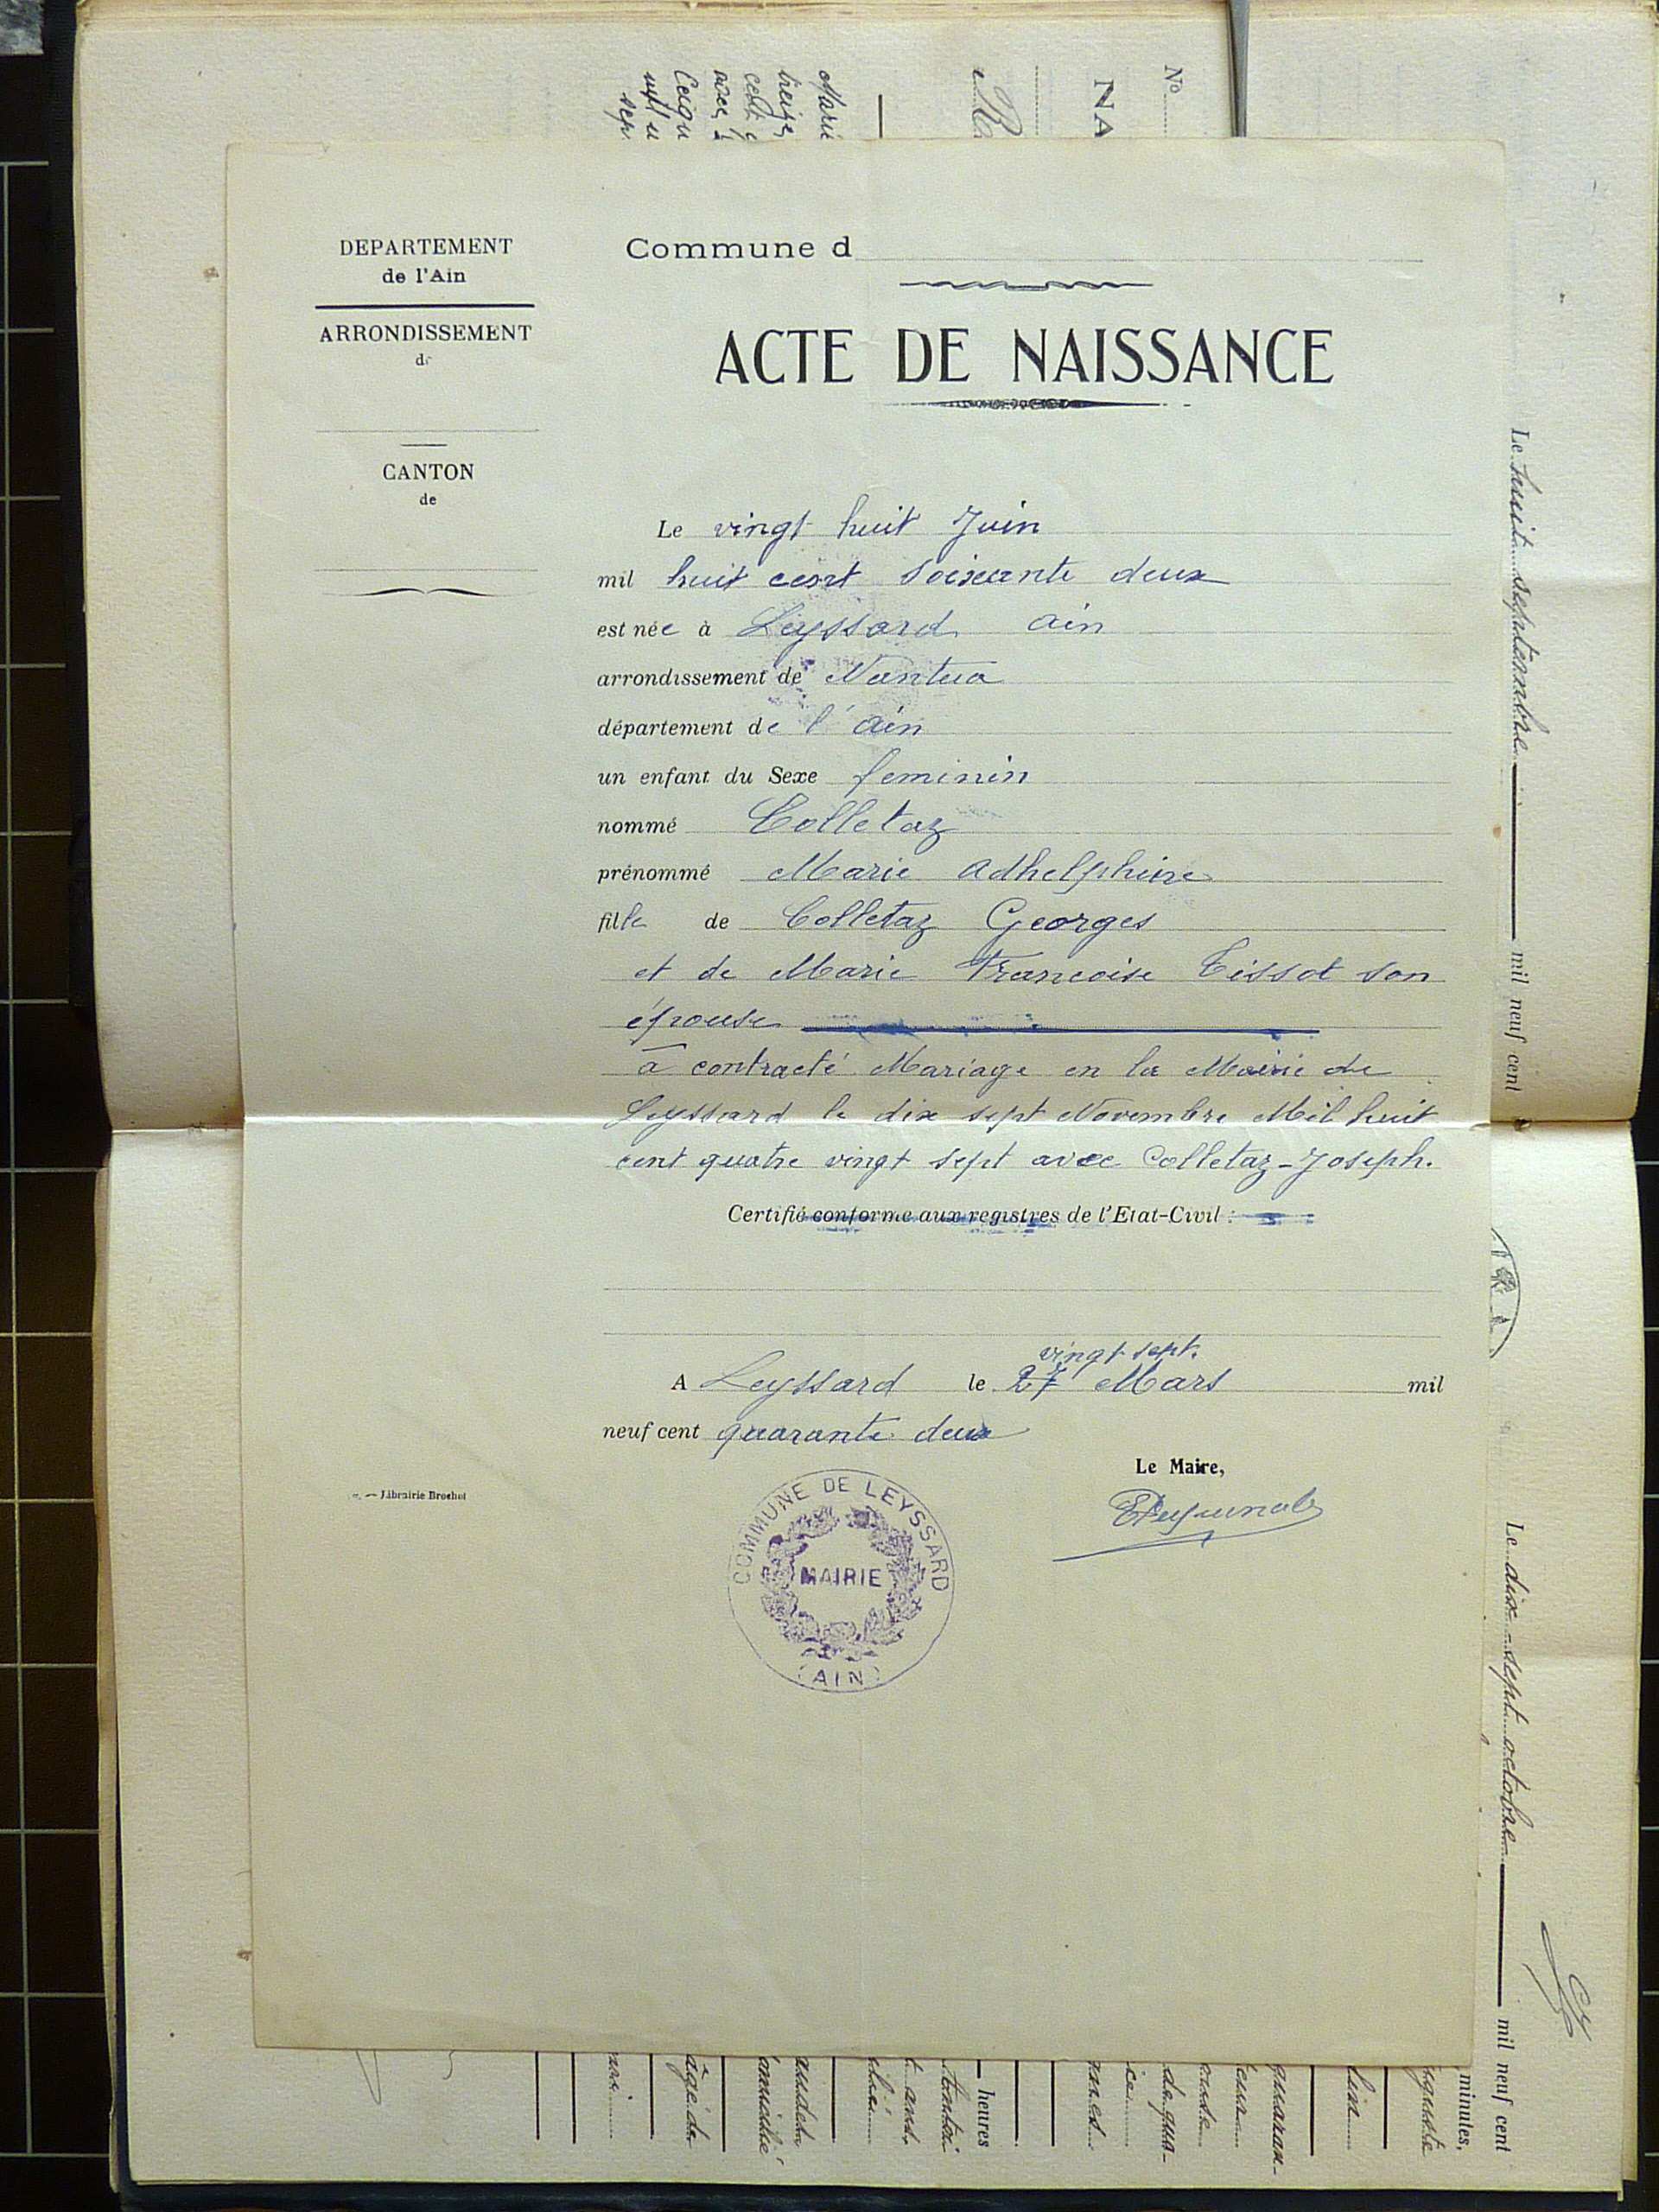 DEPARTEMENT
de l'Ain
ARRONDISSEMENT
de
CANTON
de
Commune d
ACTE DE NAISSANCE
Le vingt huit Juin
mil huit cent soixante deux
est née à Leyssard ain
arrondissement de Nantua
département de l'ain
un enfant du Sexe feminin
nommé Colletaz
prénommé Marie Adhelphine
fille de Colletaz Georges
et de Marie Francoise Tissot son
épouse
à contracté Mariage en la Mairie de
Leyssard le dix sept Novembre Mil huit
cent quatre vingt sept avec Colletaz-Joseph.
Certifié conforme aux registres de l'Etat-Civil :
vingt sept.
A Leyssard le 27 Mars mil
neuf cent quarante deux
Le Maire,
COMMUNE DE LEYSSARD
MAIRIE
(AIN)
Librairie Brochot
No
NA
Le huit septembre mil neuf cent
Le dix-sept octobre mil neuf cent
minutes,
heures
âgé de